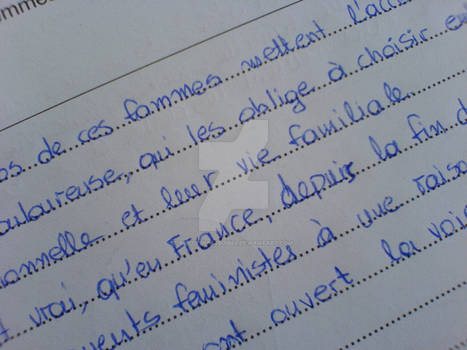 ommes
os de ces fammes mettent l'acce
ouloureuse, qui les oblige à choisir en
ionnelle et leur vie familiale.
t vrai, qu'en France, depuis la fin d
ments feministes à une raiso
ont ouvert la voie